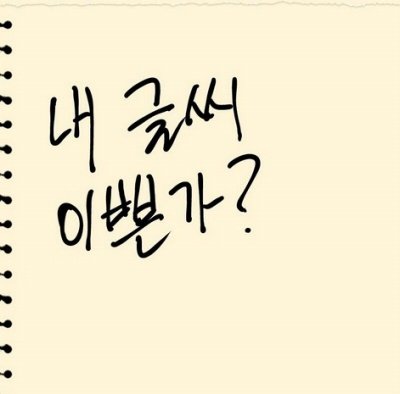 내 글씨
이쁜가?